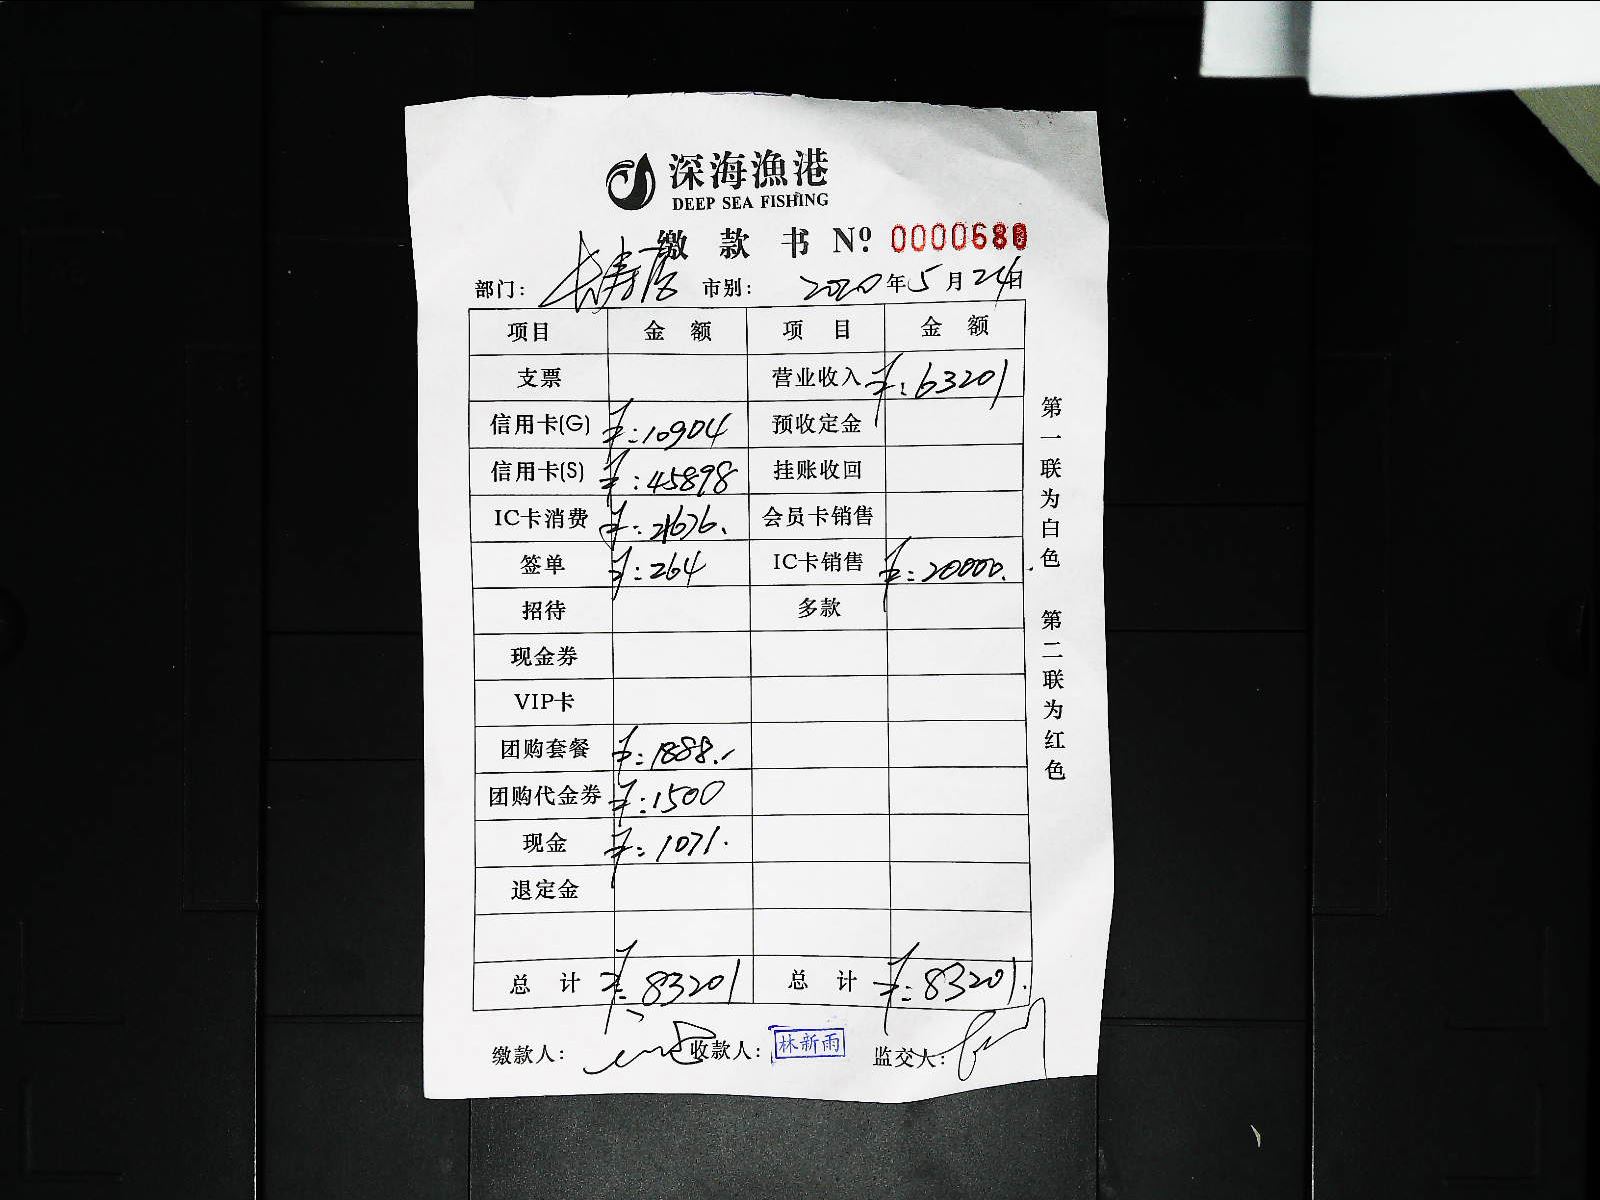 深海漁港
DEEP SEA FISHING
缴款书 Nº 0000680
部门: 长寿店 市别: 2020年5月24日
项目 金额 项目 金额
支票 营业收入 ¥:63201
信用卡(G) ¥:10904 预收定金
信用卡(S) ¥:45898 挂账收回
IC卡消费 ¥:21676. 会员卡销售
签单 ¥:264 IC卡销售 ¥:20000.
招待 多款
现金券
VIP卡
团购套餐 ¥:1888.
团购代金券 ¥:1500
现金 ¥:1071.
退定金
总计 ¥:83201 总计 ¥:83201.
缴款人: 收款人: 林新雨 监交人:
第一联为白色 第二联为红色